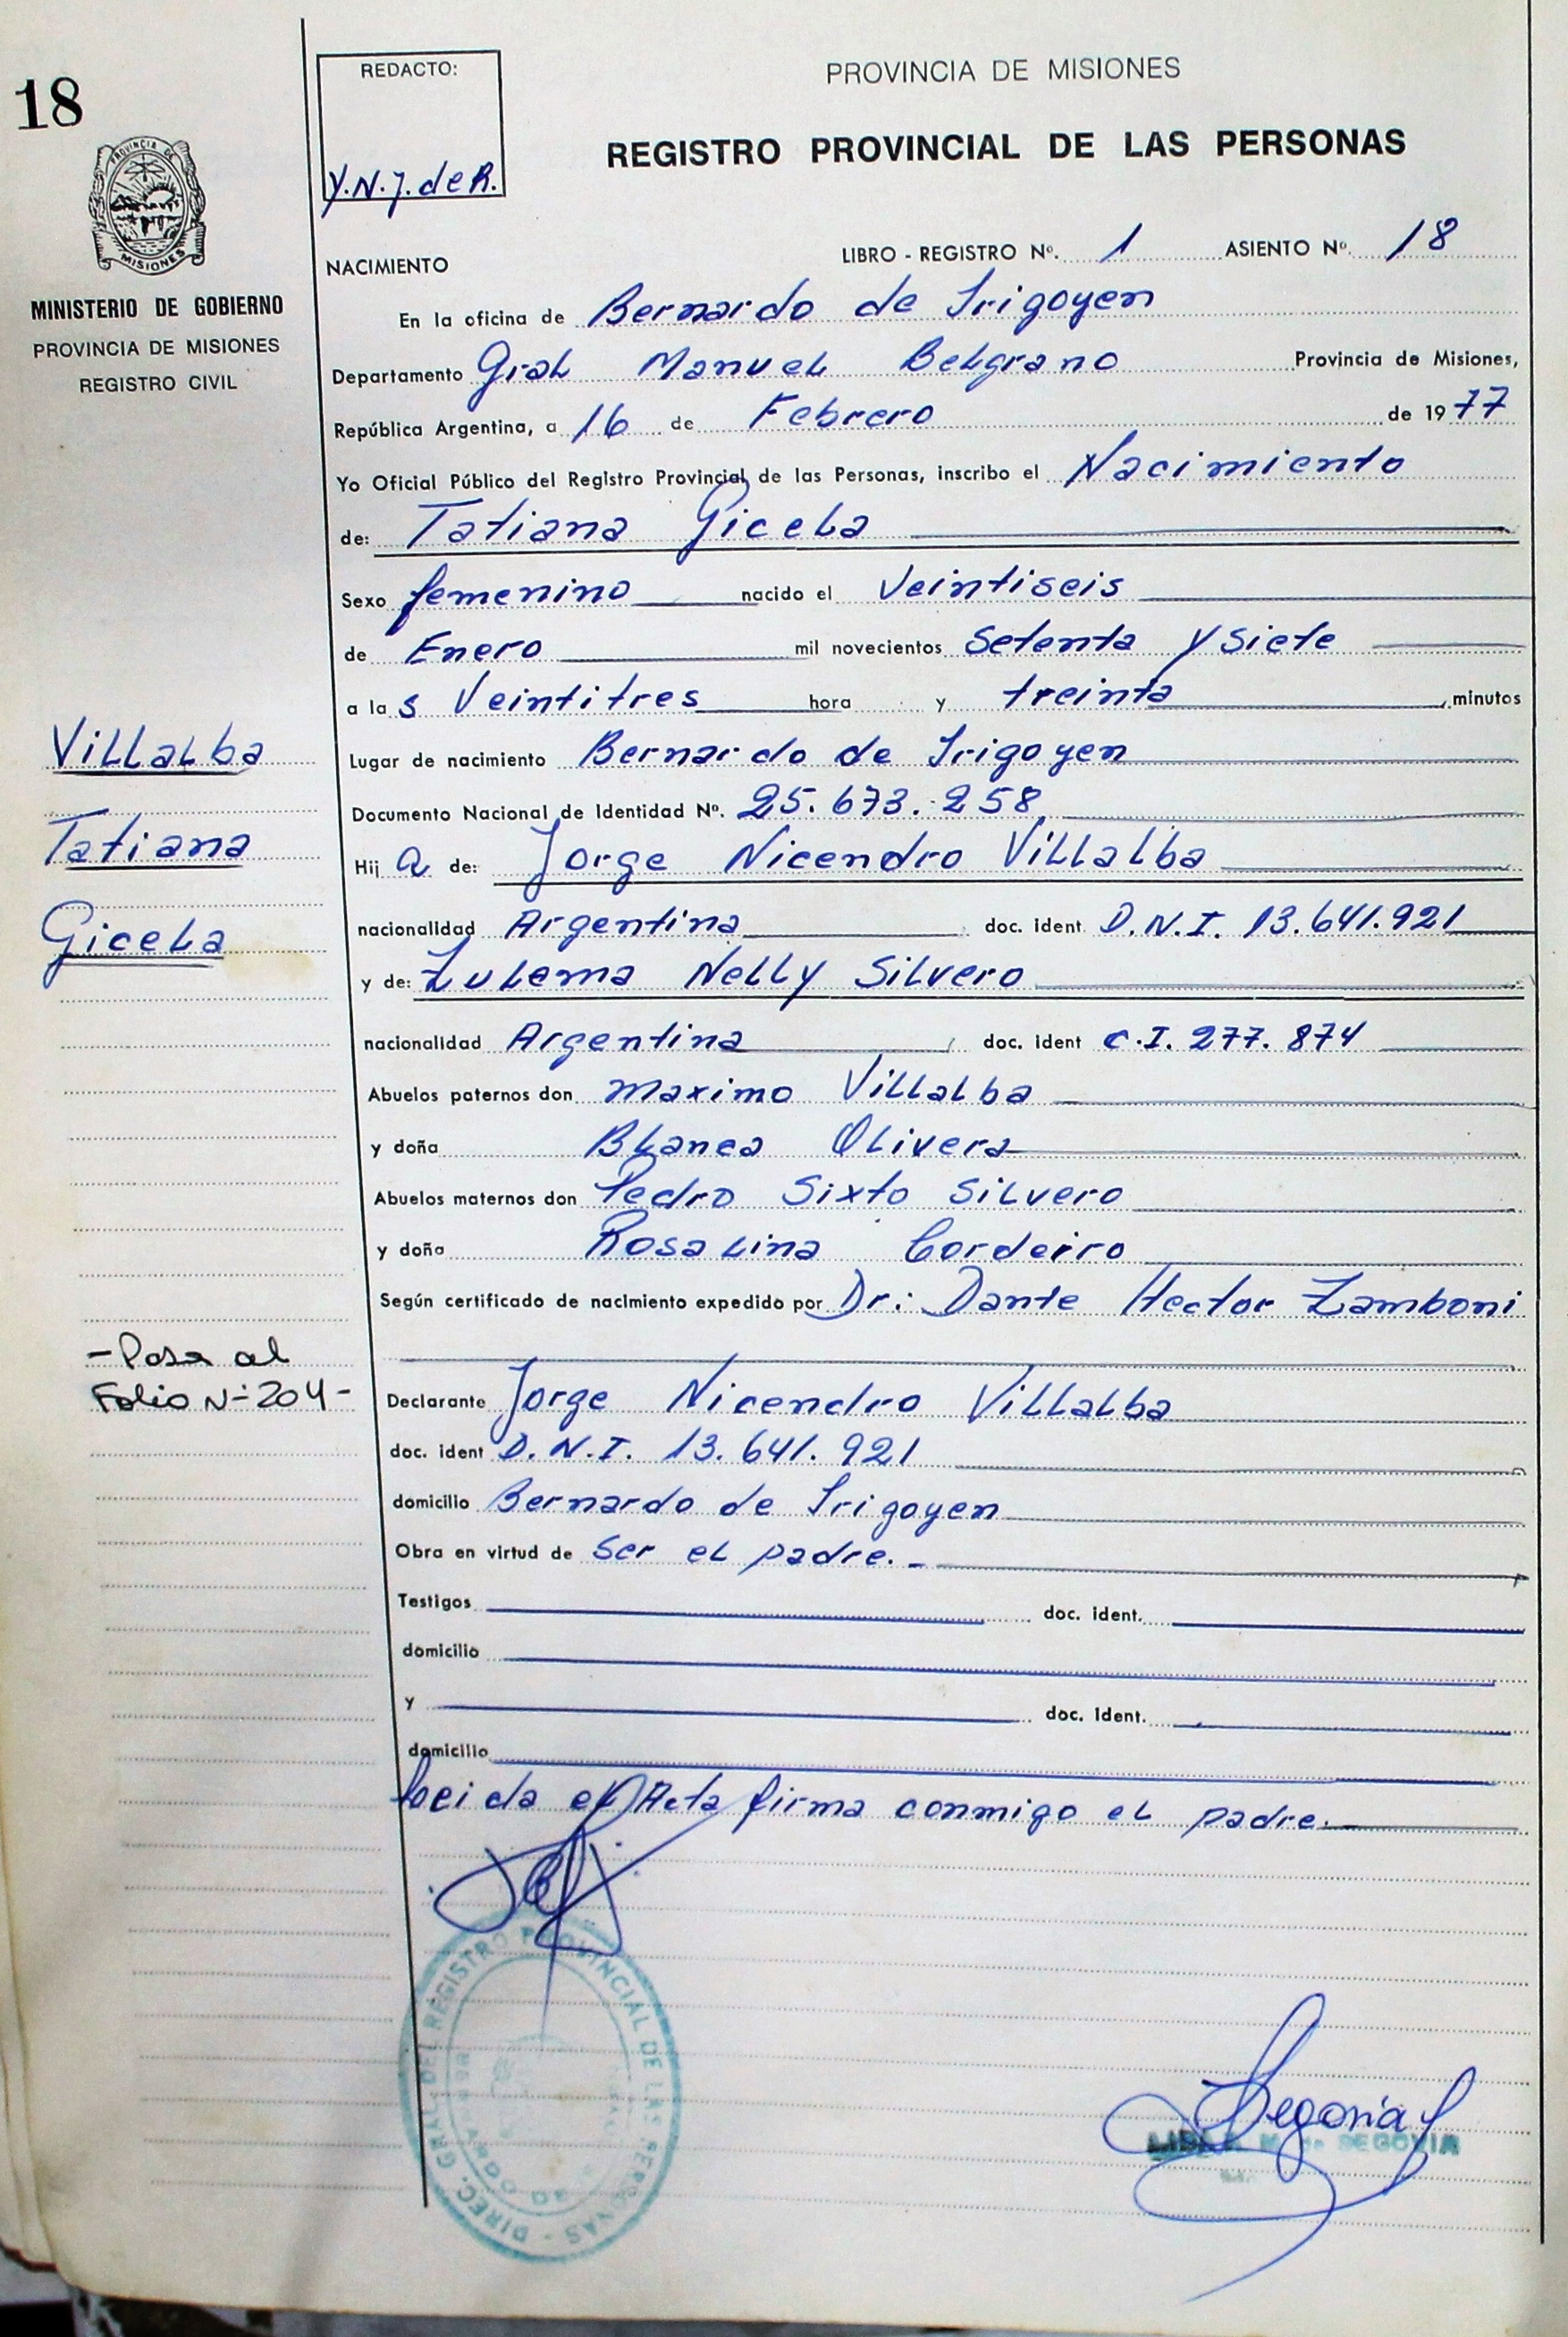 18
REDACTO:
Y.N.J. de R.
PROVINCIA DE MISIONES
REGISTRO PROVINCIAL DE LAS PERSONAS
PROVINCIA DE
MISIONES
MINISTERIO DE GOBIERNO
PROVINCIA DE MISIONES
REGISTRO CIVIL
NACIMIENTO LIBRO - REGISTRO Nº. 1 ASIENTO Nº. 18
En la oficina de Bernardo de Irigoyen
Departamento Gral Manuel Belgrano Provincia de Misiones,
República Argentina, a 16 de Febrero de 1977
Yo Oficial Público del Registro Provincial de las Personas, inscribo el Nacimiento
de: Tatiana Gicela
Sexo femenino nacido el Veintiseis
de Enero mil novecientos Setenta y Siete
a las Veintitres hora y treinta minutos
Lugar de nacimiento Bernardo de Irigoyen
Documento Nacional de Identidad Nº. 25.673.258
Hija de: Jorge Nicendro Villalba
nacionalidad Argentina doc. ident D.N.I. 13.641.921
y de: Zulema Nelly Silvero
nacionalidad Argentina doc. ident C.I. 277.874
Abuelos paternos don Maximo Villalba
y doña Blanca Olivera
Abuelos maternos don Pedro Sixto Silvero
y doña Rosalina Cordeiro
Según certificado de nacimiento expedido por Dr.: Dante Hector Zamboni
Declarante Jorge Nicendro Villalba
doc. ident D.N.I. 13.641.921
domicilio Bernardo de Irigoyen
Obra en virtud de Ser el padre.-
Testigos doc. ident.
domicilio
y doc. ident.
domicilio
el Acta firma conmigo el padre.
Villalba
Tatiana
Gicela
- Pasa al
Folio Nº 204 -
DIREC. GRAL. DEL REGISTRO PROVINCIAL DE LAS PERSONAS
Segovia
SEGOVIA